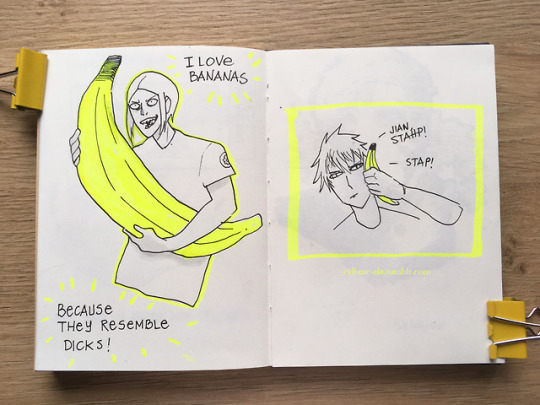 I LOVE
BANANAS
BECAUSE
THEY RESEMBLE
DICKS!
JIAN
STAHP!
STAP!